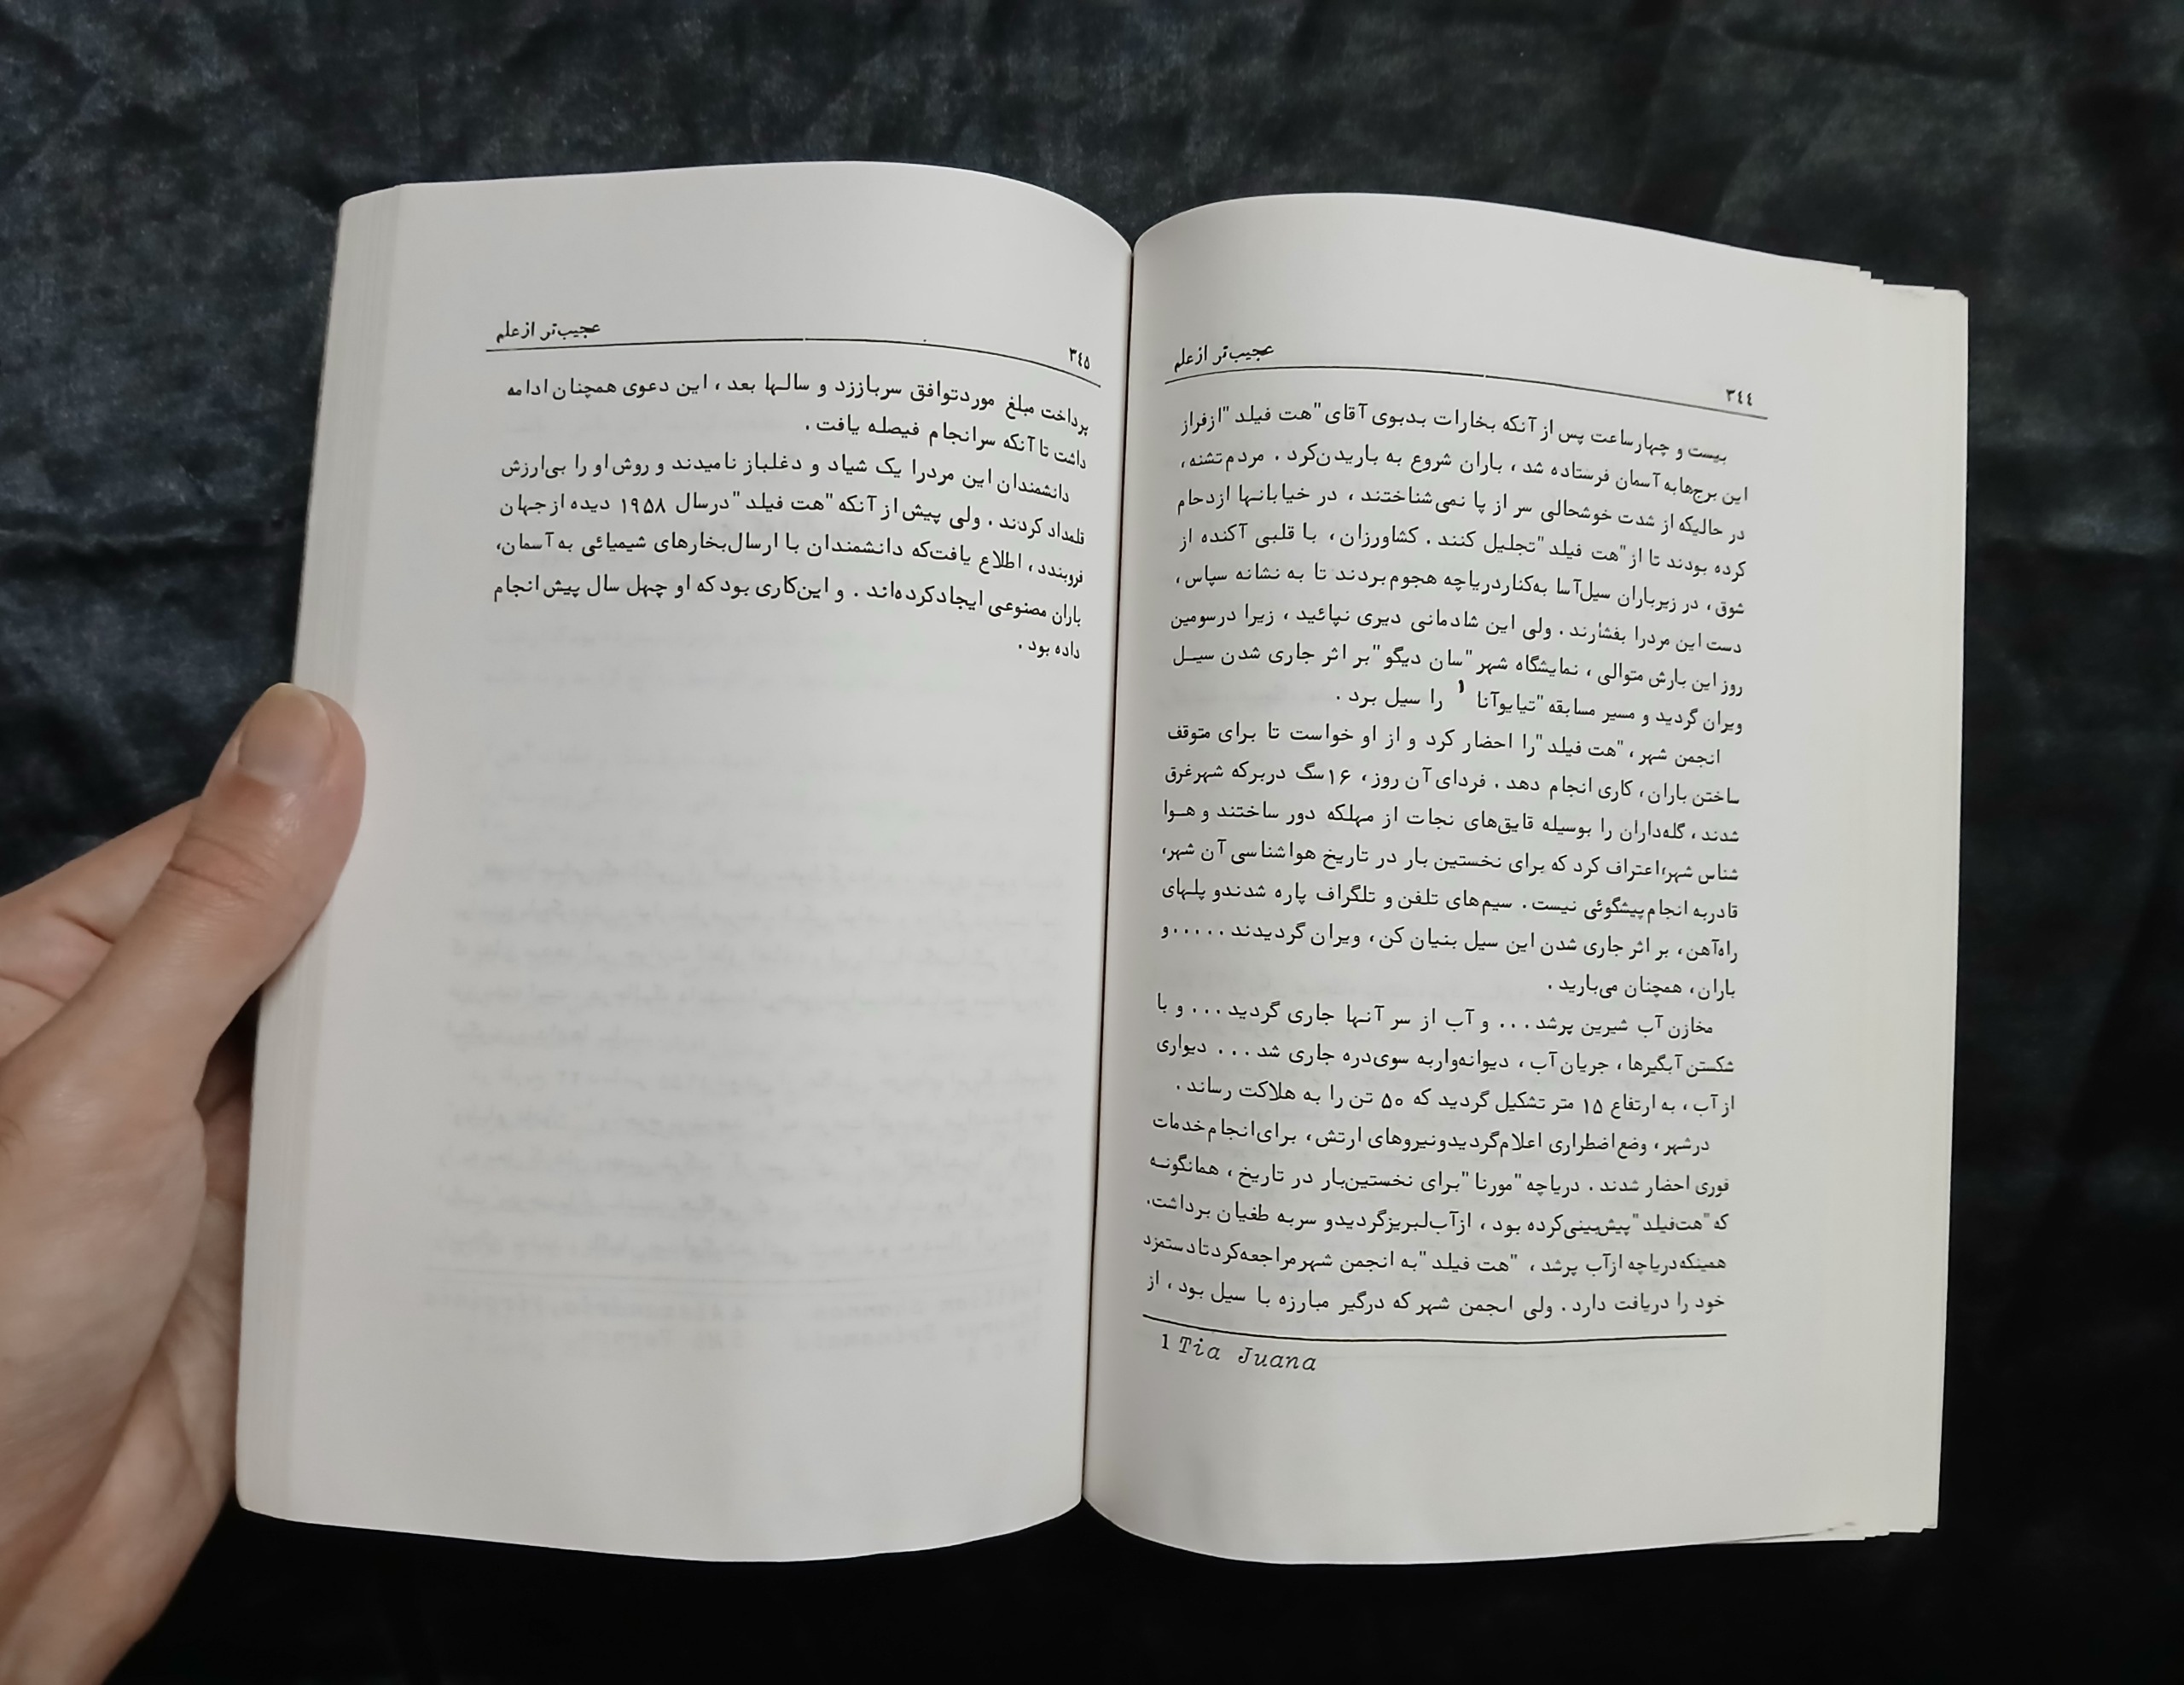 ٣٤٤
عجیب‌تر از علم
بیست و چهارساعت پس از آنکه بخارات بدبوی آقای "هت فیلد" ازفراز
این برج‌ها به آسمان فرستاده شد، باران شروع به باریدن‌کرد. مردم تشنه،
در حالیکه از شدت خوشحالی سر از پا نمی‌شناختند، در خیابانها ازدحام
کرده بودند تا از "هت فیلد" تجلیل کنند. کشاورزان، با قلبی آکنده از
شوق، در زیرباران سیل‌آسا به‌کناردریاچه هجوم‌بردند تا به نشانه سپاس،
دست این مردرا بفشارند. ولی این شادمانی دیری نپائید، زیرا درسومین
روز این بارش متوالی، نمایشگاه شهر "سان دیگو" بر اثر جاری شدن سیـل
ویران گردید و مسیر مسابقه "تیایوآنا ۱ را سیل برد.
انجمن شهر، "هت فیلد" را احضار کرد و از او خواست تا برای متوقف
ساختن باران، کاری انجام دهد. فردای آن روز، ۱۶سگ دربرکه شهرغرق
شدند، گله‌داران را بوسیله قایق‌های نجات از مهلکه دور ساختند و هـوا
شناس شهر،اعتراف کرد که برای نخستین بار در تاریخ هواشناسی آن شهر،
قادربه انجام‌پیشگوئی نیست. سیم‌های تلفن و تلگراف پاره شدندو پلهای
راه‌آهن، بر اثر جاری شدن این سیل بنیان کن، ویران گردیدند .....و
باران، همچنان می‌بارید.
مخازن آب شیرین پرشد... و آب از سر آنها جاری گردید... و با
شکستن آبگیرها، جریان آب، دیوانه‌واربه سوی‌دره جاری شد... دیواری
از آب، به ارتفاع ۱۵ متر تشکیل گردید که ۵۰ تن را به هلاکت رساند.
درشهر، وضع‌اضطراری اعلام‌گردیدونیروهای ارتش، برای‌انجام‌خدمات
فوری احضار شدند. دریاچه "مورنا" برای نخستین‌بار در تاریخ، همانگونـه
که "هت‌فیلد" پیش‌بینی‌کرده بود، ازآب‌لبریزگردیدو سربه طغیان برداشت.
همینکه‌دریاچه ازآب پرشد، "هت فیلد" به انجمن شهرمراجعه‌کردتادستمزد
خود را دریافت دارد. ولی انجمن شهر که درگیر مبارزه با سیل بود، از
1 Tia Juana
٣٤٥
عجیب‌تر از علم
پرداخت مبلغ موردتوافق سرباززد و سالها بعد، این دعوی همچنان ادامه
داشت تا آنکه سرانجام فیصله یافت.
دانشمندان این مردرا یک شیاد و دغلباز نامیدند و روش‌او را بی‌ارزش
قلمداد کردند. ولی پیش‌از آنکه "هت فیلد" درسال ۱۹۵۸ دیده ازجهان
فروبندد، اطلاع یافت‌که دانشمندان با ارسال‌بخارهای شیمیائی به‌آسمان،
باران مصنوعی ایجادکرده‌اند. و این‌کاری بودکه او چهل سال پیش‌انجام
داده بود.